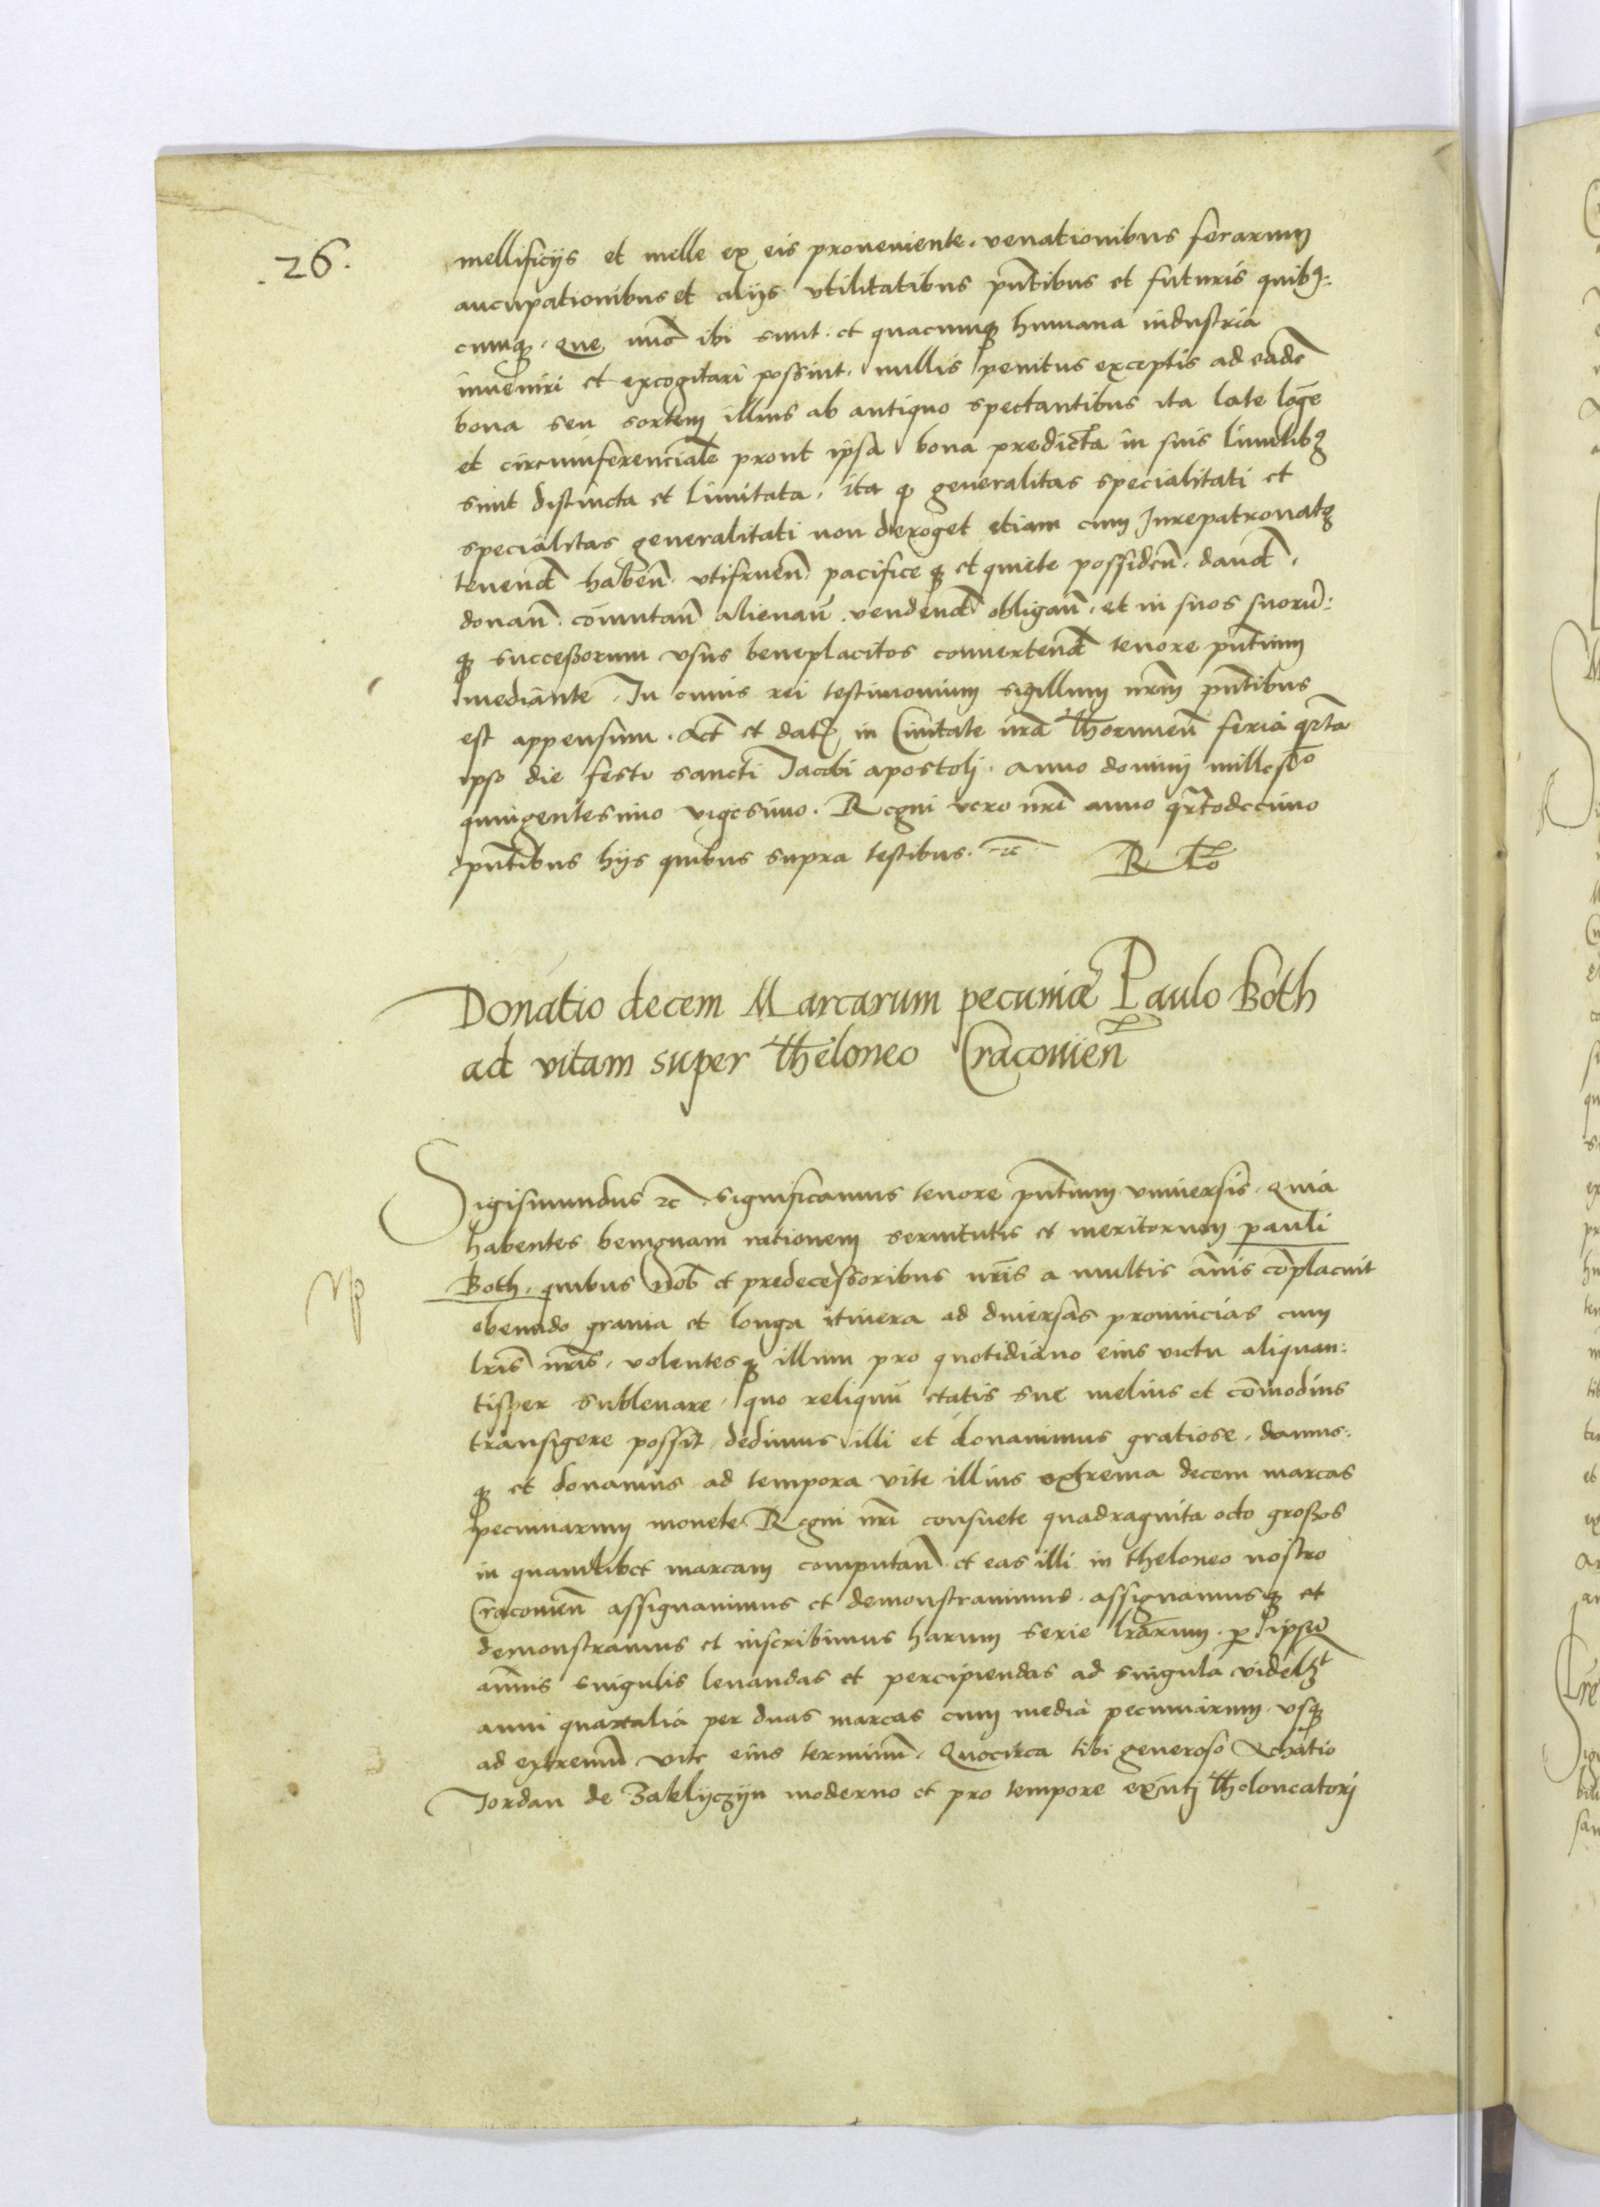 .26.
mellificijs et melle ex eis proueniente. venationibus ferarum
aucupationibus et alijs vtilitatibus pntibus et futuris quibꝫ:
cumqꝫ. que nuc ibi sunt. et quacumqꝫ humana industria
inueniri et excogitari possint. nullis penitus exceptis ad eade
bona seu sortem illius ab antiquo spectantibus ita late loge
et circumferencialr prout ipsa bona predicta in suis limitibꝫ
sint distincta et limitata. ita ꝙ generalitas specialitati et
specialitas generalitati non deroget etiam cum Jurepatronatꝫ
tenend haben. vtifruen. pacifice qꝫ et quiete possiden. dand.
donan. comutan alienan. vendend obligan. et in suos suorū:
qꝫ successorum vsus beneplacitos conuertend tenore pntium
mediante. In cuius rei testimonium sigillum nrm pntibus
est appensum. Act et datꝫ in Ciuitate nra Thorunen feria qrta
ipso die festi sancti Jacobi apostolj. anno domini millesio
quingentesimo vigesimo. Regni vero nri anno qrtodecimo
pntibus hijs quibus supra testibus. ꝛc R Lo
Donatio decem Marcarum pecuniæ Paulo Both
ad vitam super Theloneo Cracouien
Sigismundus ꝛc significamus tenore pntium vniuersis. Quia
habentes benignam rationem seruitutis et meritorum pauli
Both. quibus Nob et predecessoribus nris a multis anis coplacuit
obeundo grauia et longa itinera ad diuersas prouincias cum
lris nris. volentesqꝫ illum pro quotidiano eius victu aliquan:
tisper subleuare. quo reliquū etatis sue melius et comodius
transigere possit dedimus illi et donauimus gratiose. damus:
qꝫ et donamus ad tempora vite illius extrema decem marcas
pecuniarum monete Regni nri consuete quadraginta octo grossos
in quamlibet marcam computan et eas illi in theloneo nostro
Cracouien assignauimus et demonstrauimus. assignamusqꝫ et
demonstramus et inscribimus harum serie lrarum. p ipsū
annis singulis leuandas et percipiendas ad singula videlꝫt
anni quartalia per duas marcas cum media pecuniarum. vsqꝫ
ad extremū vite eius terminū. Quocirca tibi generoso Achatio
Jordan de Zaklyczyn moderno et pro tempore exnti Theloneatorj